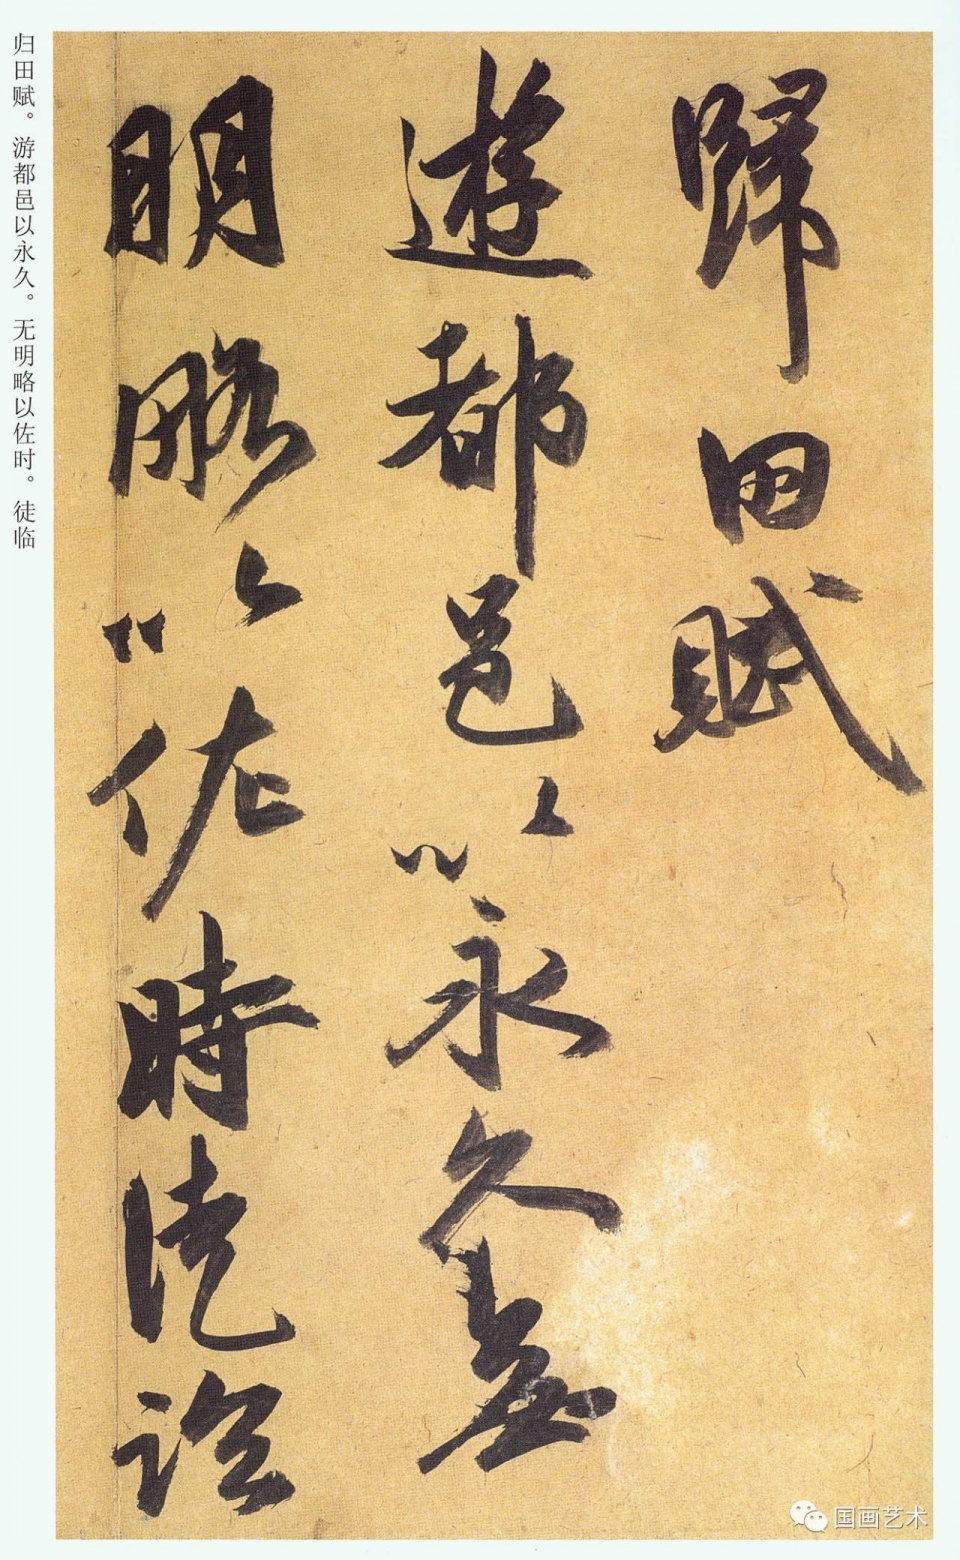 歸田賦
遊都邑以永久無
明略以佐時徒臨
归田赋。游都邑以永久。无明略以佐时。徒临
国画艺术